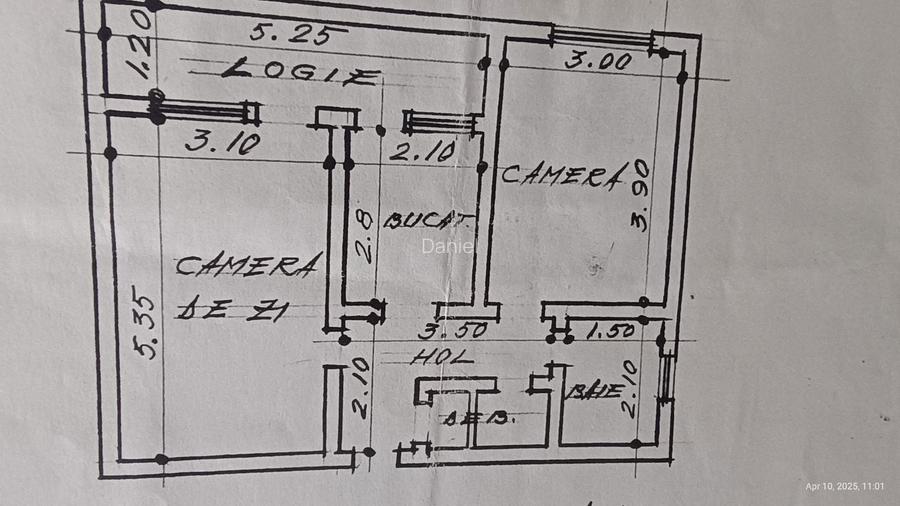 1.20
5.25
LOGIE
3.00
3.10
2.10
CAMERA
3.90
2.8
BUCAT
Daniel
CAMERA
DE ZI
5.35
3.50
1.50
HOL
2.10
DEB.
BAIE
2.10
Apr 10, 2025, 11:01